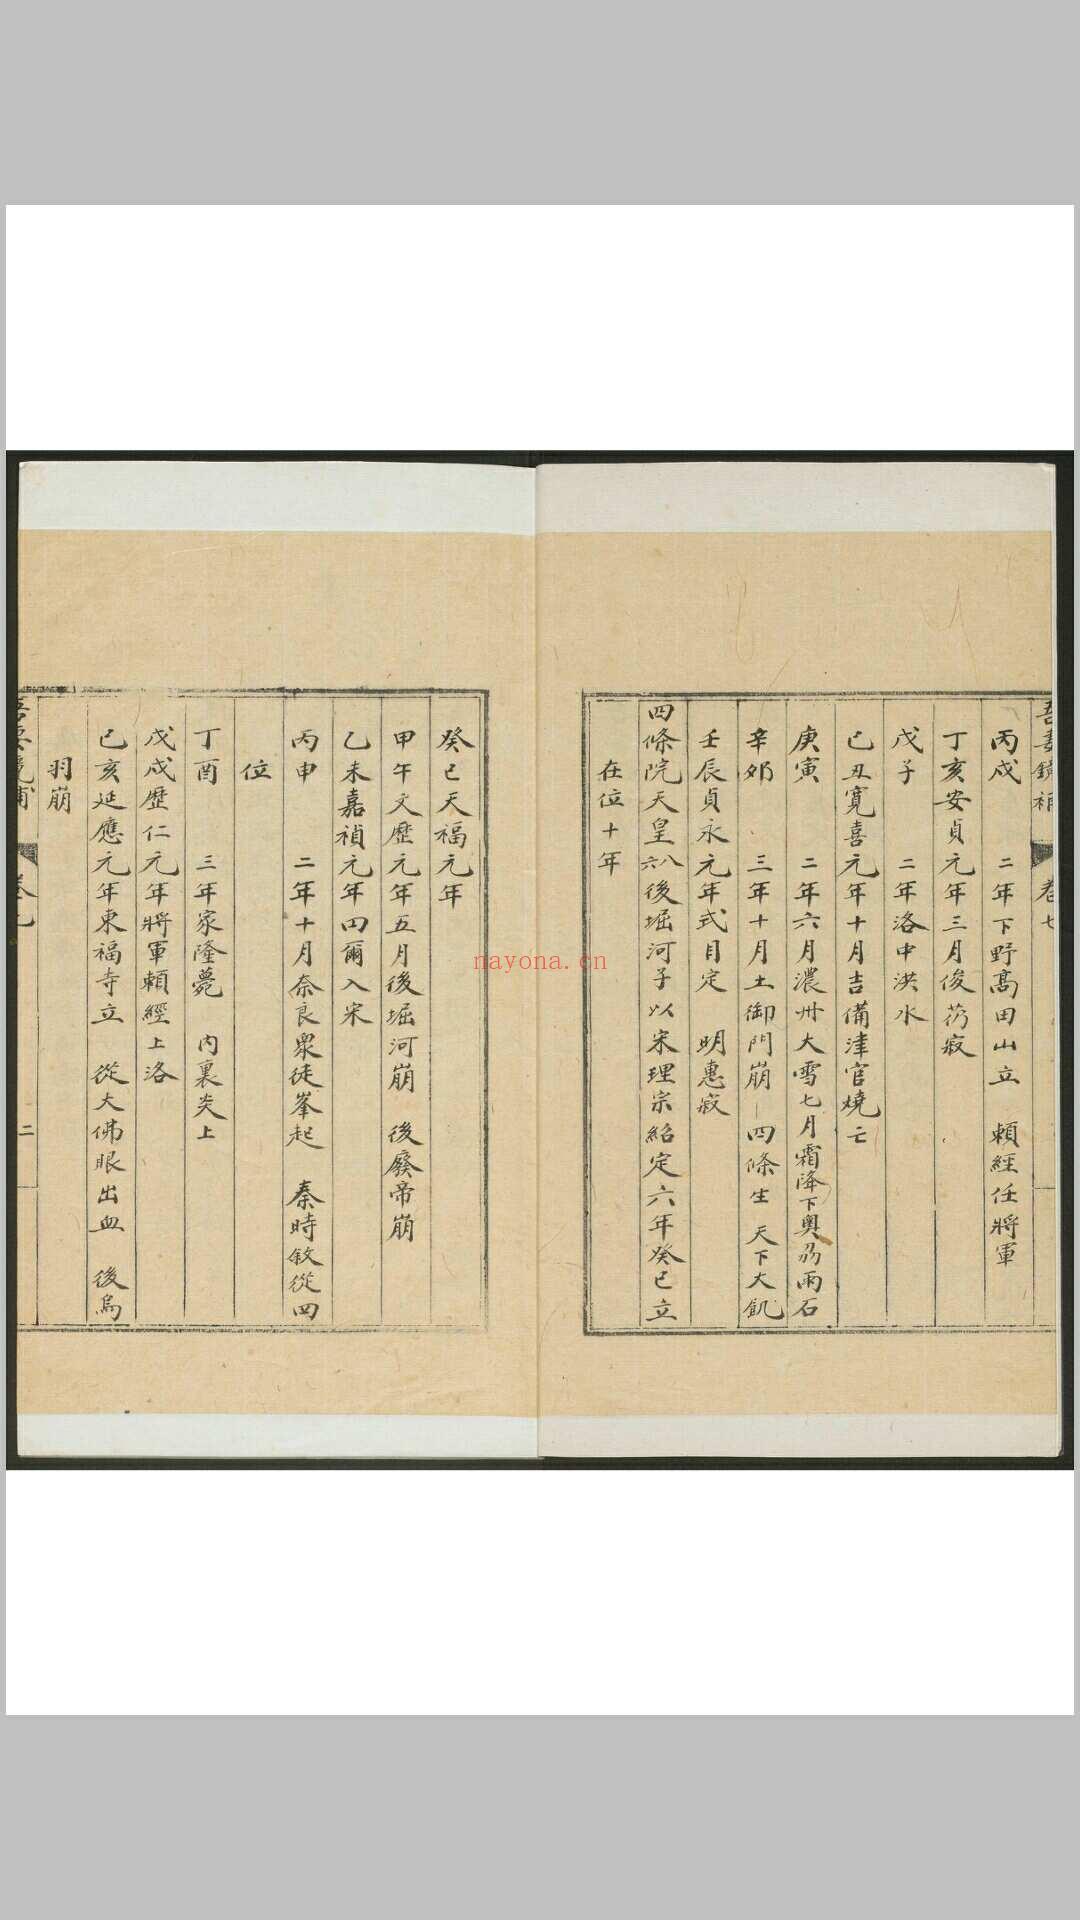 吾妻鏡補 卷七
丙戌 二年下野高田山立 賴經任將軍
丁亥安貞元年三月俊芿寂
戊子 二年洛中洪水
己丑寬喜元年十月吉備津宮燒亡
庚寅 二年六月濃州大雪七月霜降下奧羽雨石
辛卯 三年十月土御門崩 四條生 天下大飢
壬辰貞永元年式目定 明惠寂
四條院天皇八六後堀河子以宋理宗紹定六年癸巳立
在位十年
癸巳天福元年
甲午文歷元年五月後堀河崩 後廢帝崩
乙未嘉禎元年四爾入宋
丙申 二年十月奈良衆徒峯起 秦時敘從四
位
丁酉 三年家隆薨 內裏炎上
戊戌歷仁元年將軍賴經上洛
己亥延應元年東福寺立 從大佛眼出血 後鳥
羽崩
二
nayona.cn